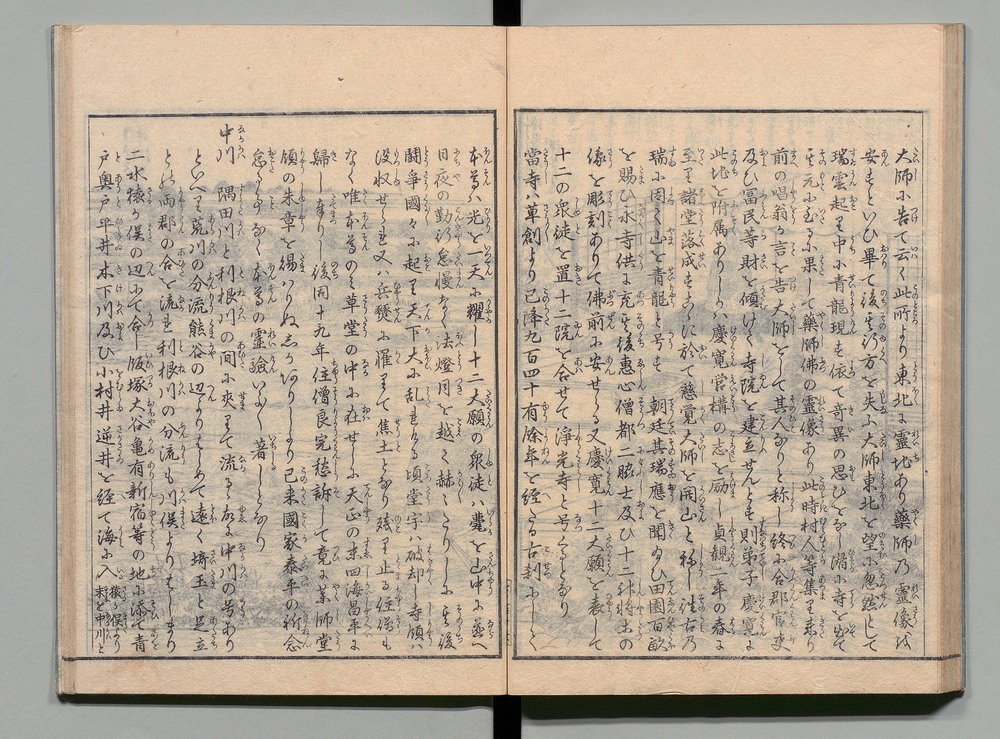 大師に告て云く此所より東北に霊地あり薬師乃霊像を
安すといひ畢て後其行方を失ふ大師東北を望に忽然として
瑞雲起り中に青龍現す依て奇異の思ひをなし潜に寺を出て
其元に至るに果して薬師佛の霊像あり此時村人等集り来り
前の唱翁か言を告大師をして其人なりと称し終に合郡官吏
及ひ冨民等財を傾けて寺院を建立せんとす則弟子慶寛に
此地を附属ありしか慶寛営構の志を励し貞観二年の春に
至り諸堂落成すこゝに於て慈覚大師を開山と称し往古乃
瑞に因て山を青龍と号す朝廷其瑞應を聞ゐひ田園百畝
を賜ひ永寺供に充其後惠心僧都二脇士及ひ十二神将土の
像を彫刻ありて佛前に安せらる又慶寛十二大願を表して
十二の衆徒を置十二院を合せて浄光寺と号くるなり
當寺ハ草創より已降九百四十有餘年を經たる古刹にして
本尊ハ光を一天に耀し十二大願の衆徒ハ甍を山中に並へ
日夜の勤行怠慢なく法燈月を越て赫々たりしに其後
闘争國々に起り天下大に乱るゝ頃堂宇ハ破却し寺領ハ
没収せられ又ハ兵燹に罹りて焦土となり残り止る住僧も
なく唯本尊のミ草堂の中に在せしに天正の末四海昌平に
歸しなりし後同十九年住僧良完愁訴して竟に薬師堂
領の朱章を賜ハりぬしかありしより已来國家泰平の祈念
怠らすなく本尊の霊驗いよ〱著しとなり
中川 隅田川と利根川の間に夾りて流るゝ故に中川の号あり
といへり荒川の分流熊谷の辺よりはしめて遠く埼玉と足立
との両郡の合を流れ利根川の分流も川俣よりはしまり
二水猿か俣の辺にて合し飯塚大谷亀有新宿等の地に添て青
戸奥戸平井木下川及ひ小村井逆井を經て海に入